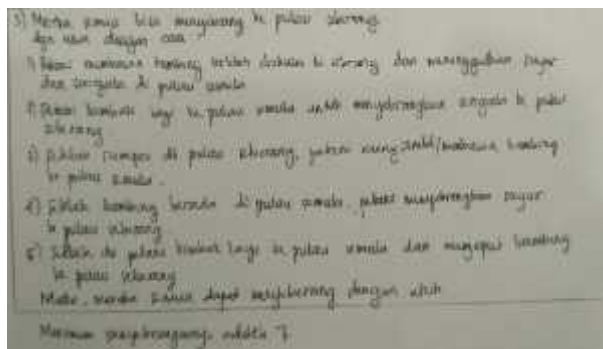 3) Mereka semua bisa menyebrang ke pulau sebrang
dgn utuh dengan cara
1) membawa kambing terlebih dahulu ke sebrang dan meninggalkan sayur
dan serigala di pulau semula
2) kembali lagi ke pulau semula untuk menyebrangkan serigala ke pulau
sebrang
3) Setelah sampai di pulau sebrang, petani membawa kambing
ke pulau semula.
4) Setelah kambing berada di pulau semula, petani menyebrangkan sayur
ke pulau sebrang
5) Setelah itu petani kembali lagi ke pulau semula dan menjemput kambing
ke pulau sebrang
Maka, mereka semua dapat menyeberang dengan utuh
Minimum penyebrangannya adalah 7